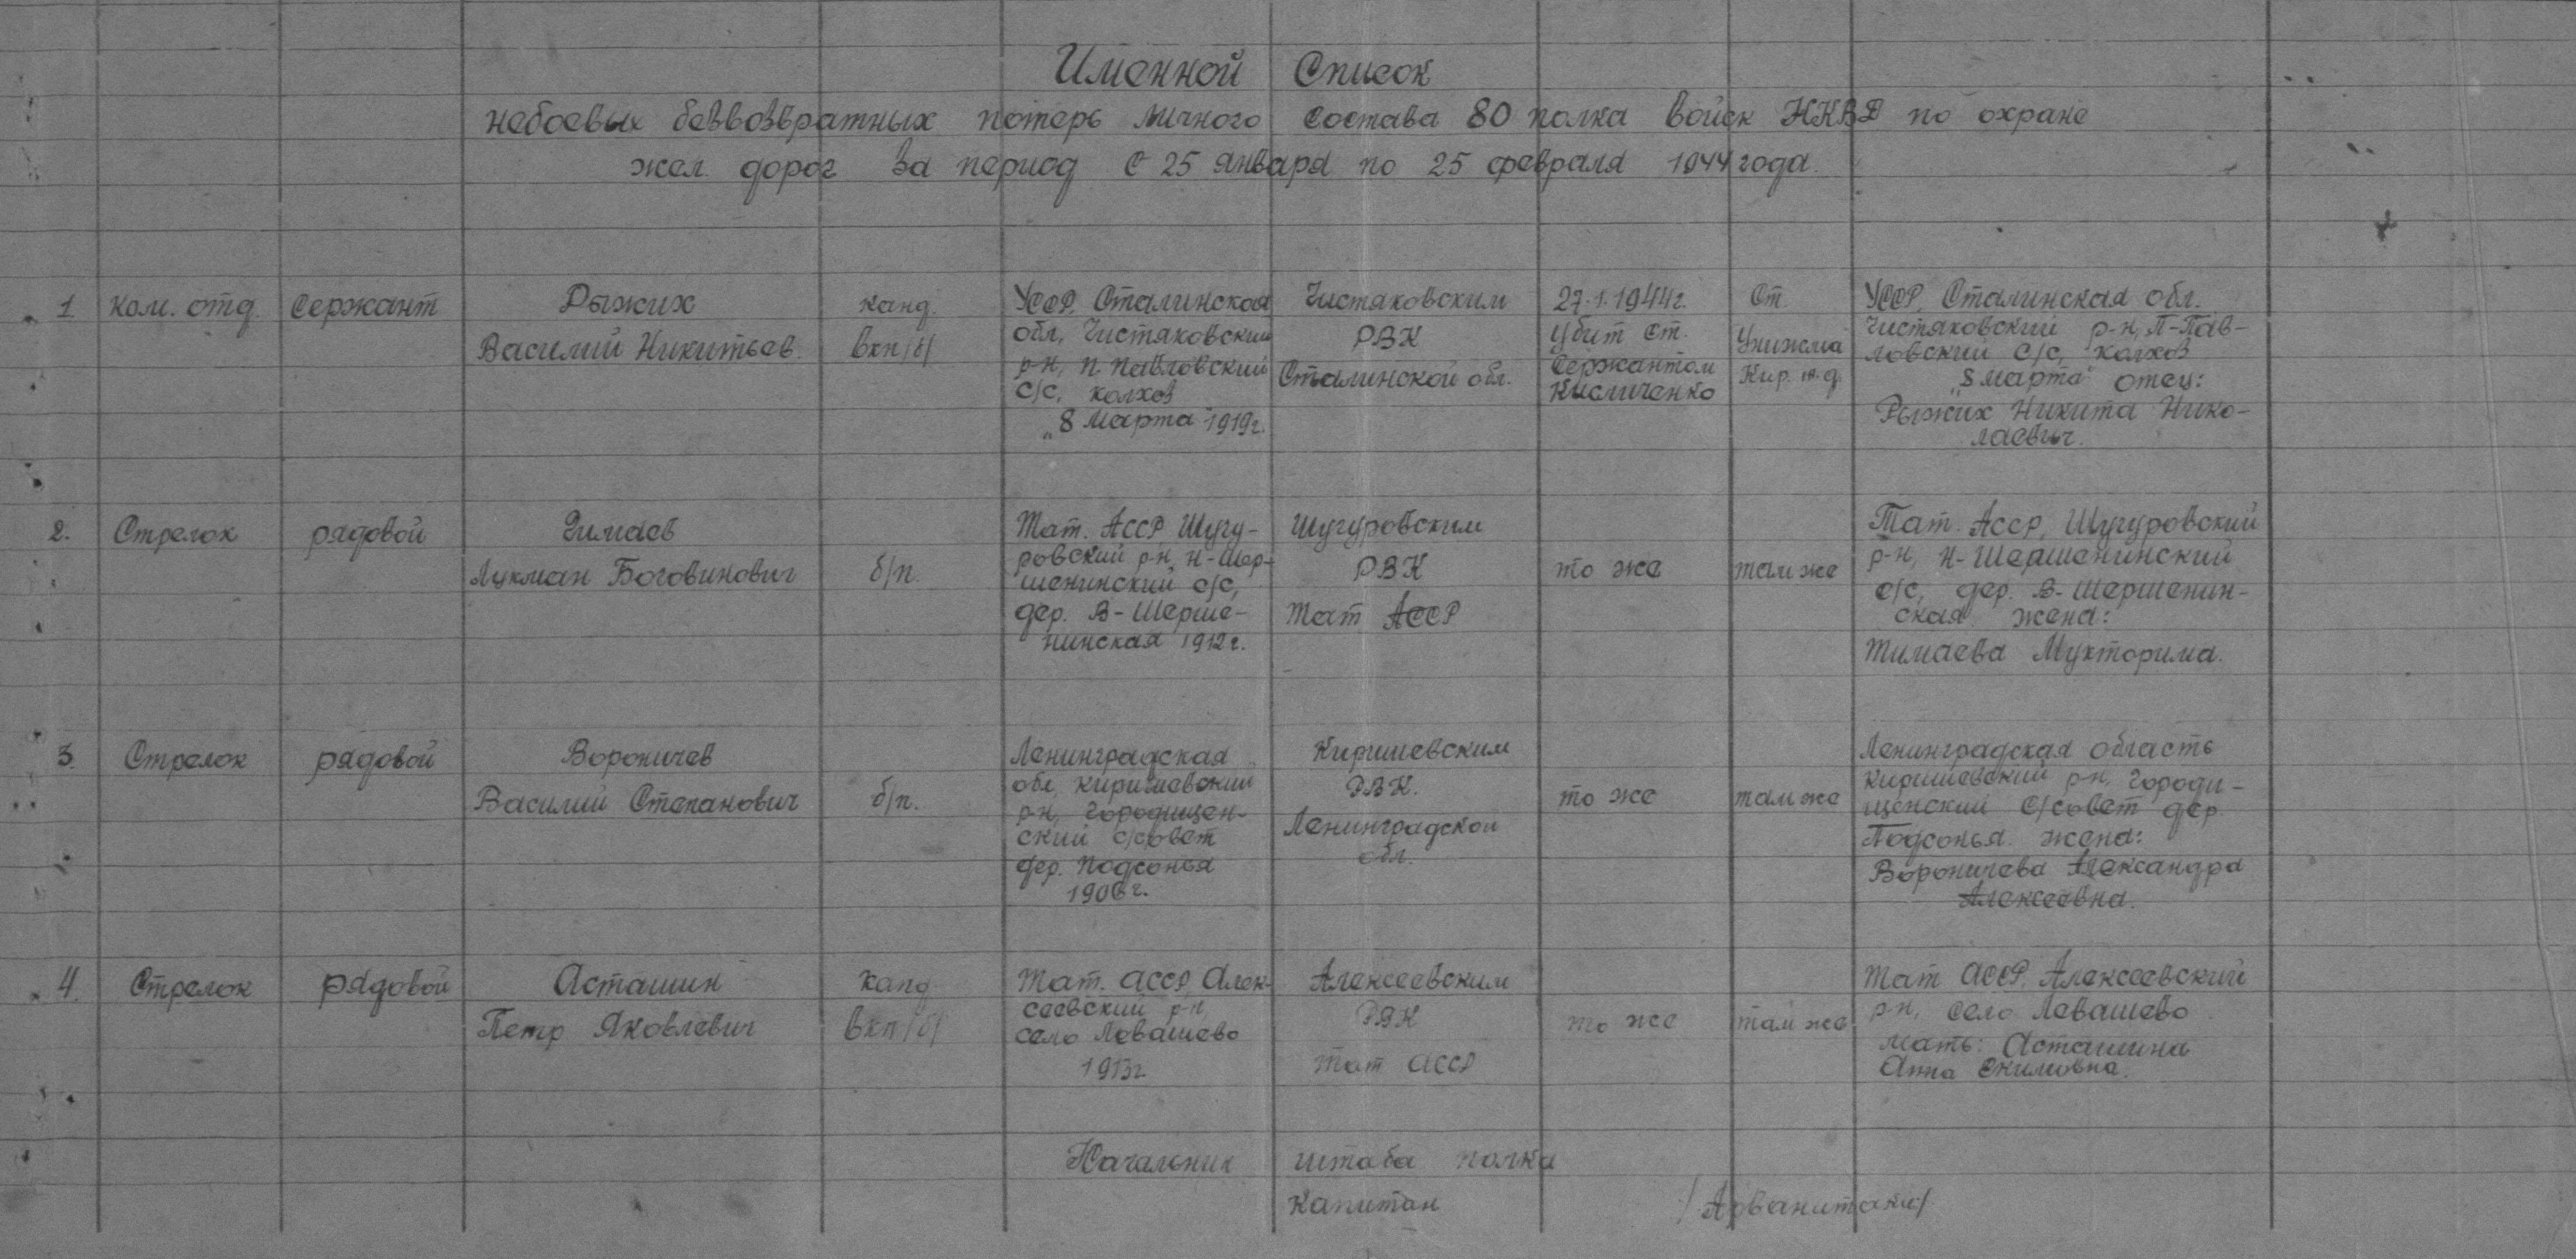 Именной Список
небоевых безвозвратных потерь личного состава 80 полка войск НКВД по охране
жел. дорог за период с 25 января по 25 февраля 1944 года.
1 ком. отд. Сержант Рыжих канд. УССР, Сталинская Чистяковским 27.1.1944г. Ст. УССР, Сталинская обл.
Василий Никитьев. вкп/б/ обл, Чистяковский РВК Убит ст. Унижма Чистяковский р-н, П-Пав-
р-н, п. Павловский Сталинской обл. Сержантом Кир. ж.д. ловский с/с, колхоз
с/с, колхоз Кисличенко „8 марта" отец:
„8 Марта" 1919г. Рыжих Никита Нико-
лаевич.
2. Стрелок рядовой Тат. АССР, Шугу- Шугуровским Тат. АССР, Шугуровский
Лукман Боговинович б/п. ровский р-н, Н-Шер- РВК то же там же р-н, Н-Шершенинский
шенинский с/с, с/с, дер. В-Шершенин-
дер. В-Шерше- Тат АССР ская жена:
нинская 1912г. Тимаева Мухторима.
3. Стрелок рядовой Вороничев Ленинградская Киришевским Ленинградская область
Василий Степанович б/п. обл, Киришевский РВК. то же там же Киришевский р-н, Городи-
р-н, Городищен- щенский с/совет дер.
ский с/совет Ленинградской Подсопья жена:
дер. Подсопья обл. Вороничева Александра
1906г. Алексеевна.
4. Стрелок рядовой Асташин канд Тат. АССР Алек- Алексеевским Тат АССР, Алексеевский
Петр Яковлевич вкп/б/ сеевский р-н, РВК то же там же р-н, село Левашево
село Левашево мать: Асташина
1913г. Тат АССР Анна Екимовна.
Начальник штаба полка
капитан /Арванитаки/